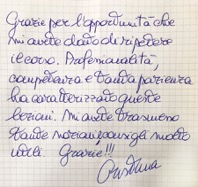 Grazie per l'opportunità che
mi avete dato di ripetere
il corso. Professionalità,
competenza e tanta pazienza
ha caratterizzato queste
lezioni. Mi avete trasmesso
tante nozioni, consigli molto
utili. Grazie!!!